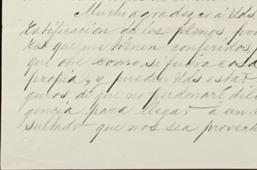 Mucho agradezco á Uds.
ratificacion de los plenos po
res que me tienen conferidos,
que obre como si fuera cosa
propia, y pueden Uds estar
guros de que no perdonaré dili
gencia para llegar á un re
sultado que nos sea provech